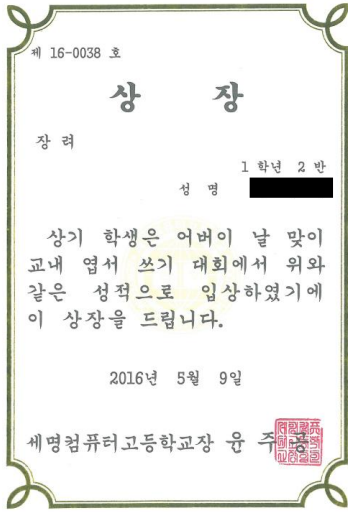 제 16-0038 호
상 장
장 려
1 학년 2 반
성 명
상기 학생은 어버이 날 맞이
교내 엽서 쓰기 대회에서 위와
같은 성적으로 입상하였기에
이 상장을 드립니다.
2016년 5월 9일
세명컴퓨터고등학교장 윤 주 흥